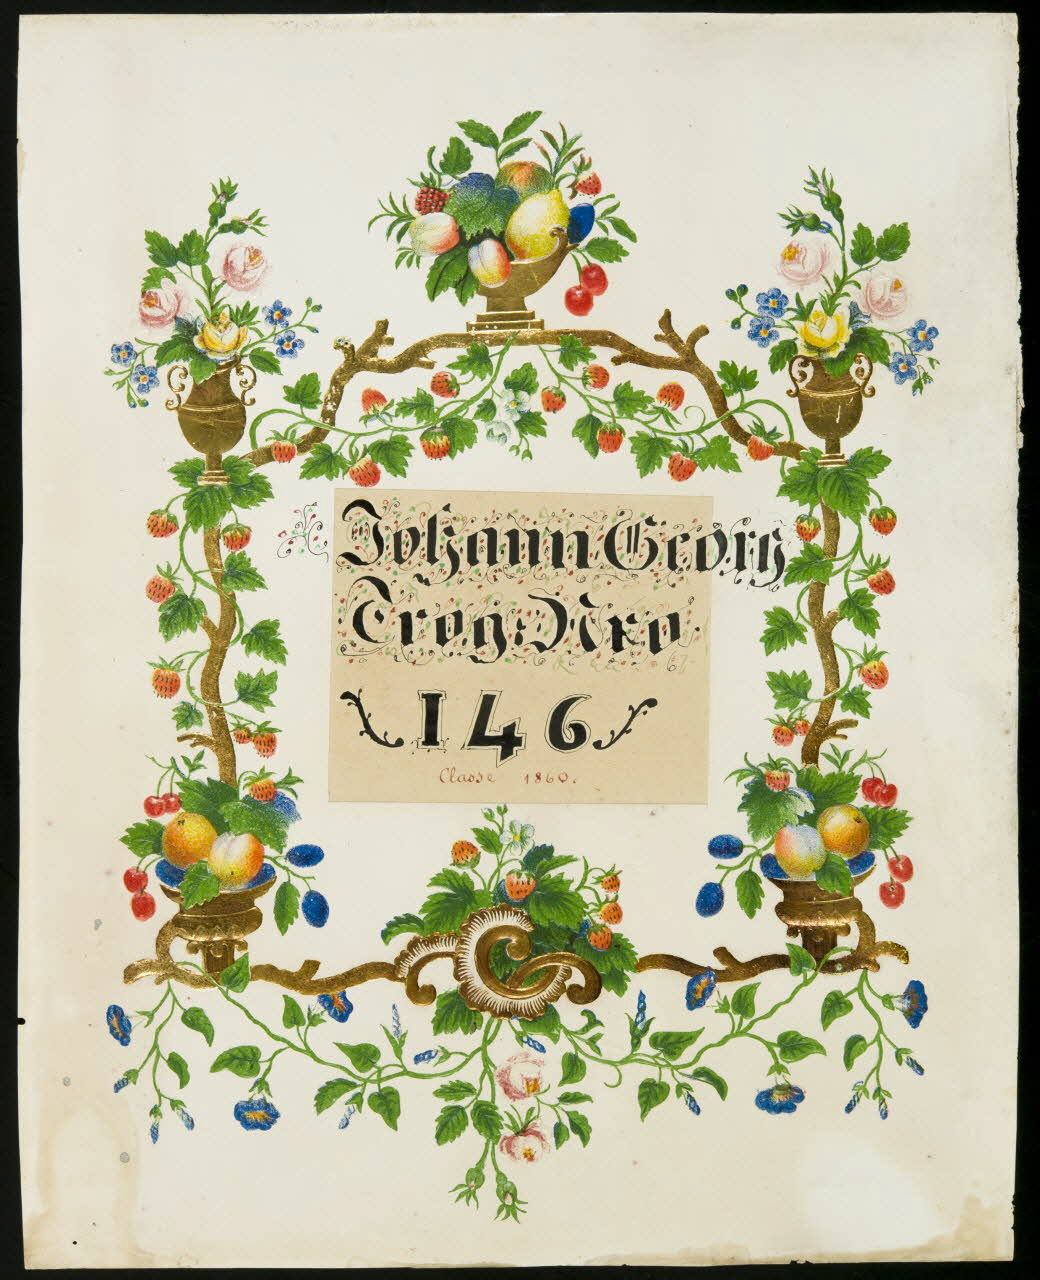 Johann Georg
Trog: Nro
146
Classe 1860.